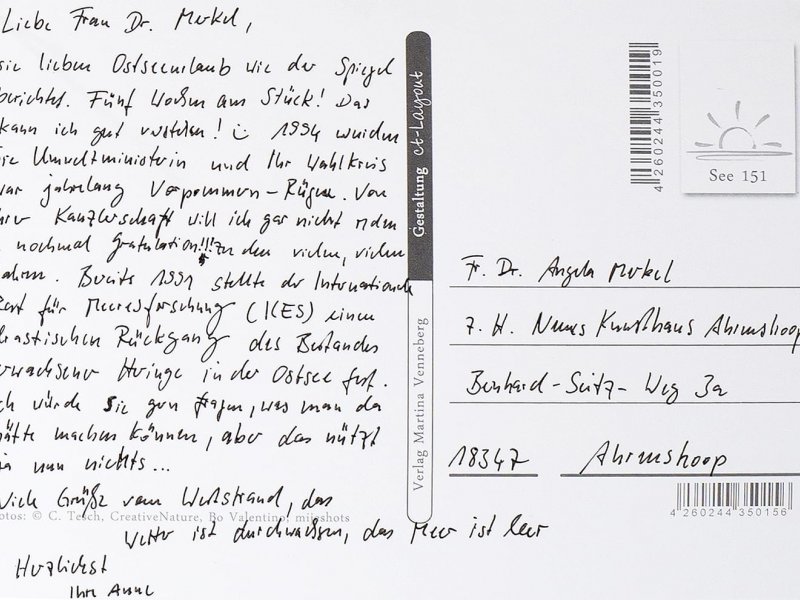 Liebe Frau Dr. Merkel,
sie lieben Ostseeurlaub wie der Spiegel
berichtet. Fünf Wochen am Stück! Das
kann ich gut verstehen! 1994 wurden
Sie Umweltministerin und Ihr Wahlkreis
war jahrelang Vorpommern-Rügen. Von
Ihrer Kanzlerschaft will ich gar nicht reden
nochmal Gratulation!!! Zu den vielen, vielen
Jahren. Bereits 1991 stellte der Internationale
Rat für Meeresforschung (ICES) einen
drastischen Rückgang des Bestandes
erwachsener Heringe in der Ostsee fest.
Ich würde Sie gern fragen, was man da
hätte machen können, aber das nützt
ja nun nichts...
Viele Grüße vom Weststrand, das
Wetter ist durchwachsen, das Meer ist leer
Herzlichst
Ihre Anne
Fotos: © C. Tesch, CreativeNature, Bo Valentino, miloshots
Gestaltung ct-Layout
Verlag Martina Venneberg
4 260244 350019
See 151
Fr. Dr. Angela Merkel
z. H. Neues Kunsthaus Ahrenshoop
Bernhard-Seitz-Weg 3a
18347 Ahrenshoop
4 260244 350156